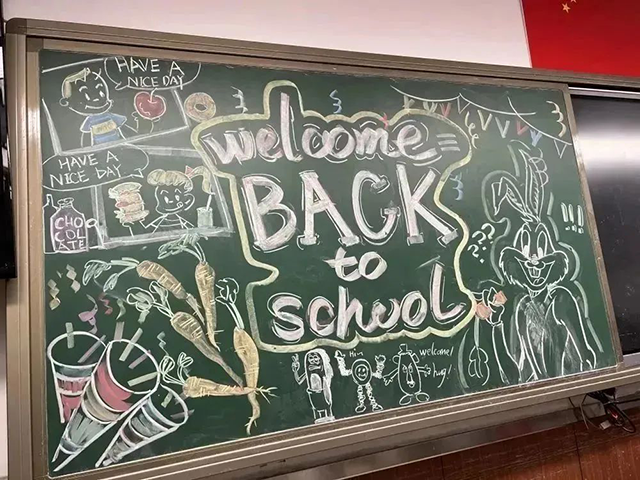 HAVE A
NICE DAY
HAVE A
NICE DAY
CHO
COL
ATE
welcome
BACK
to
school
???
!!!
Hi~
welcome!
hug!